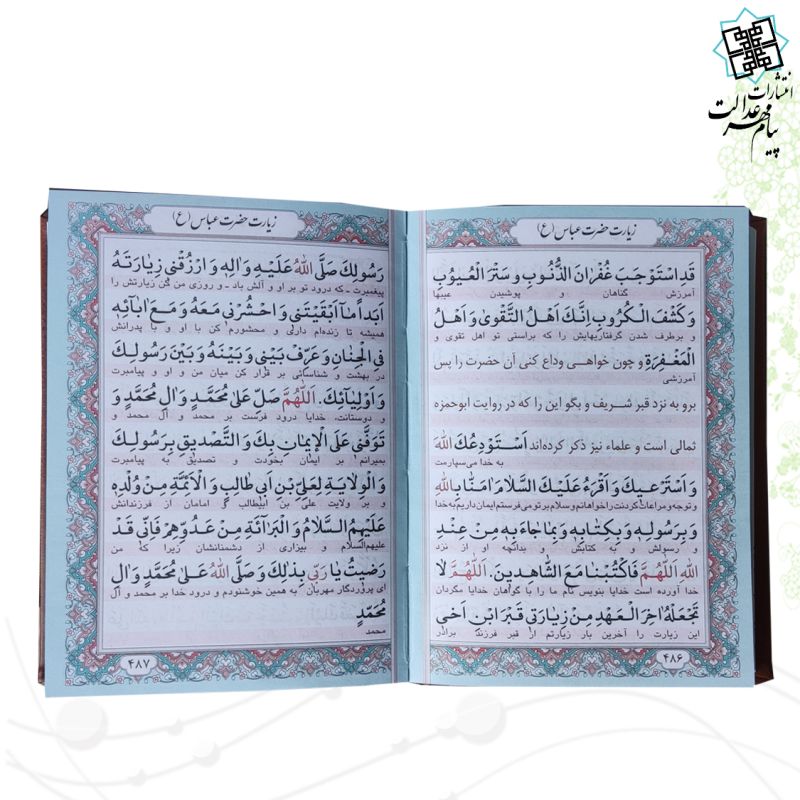 انتشارات
پیام مهر عدالت
زیارت حضرت عباس (ع)
قَدِ اسْتَوْجَبَ غُفْرانَ الذُّنُوبِ وَ سَتْرَ الْعُیُوبِ
آمرزش گناهان و پوشیدن عیبها
وَ كَشْفَ الْكُرُوبِ اِنَّكَ اَهْلُ التَّقْوىٰ وَ اَهْلُ
و برطرف شدن گرفتاریهایش را که براستی تو اهل تقوی و
الْمَغْفِرَةِ و چون خواهی وداع کنی آن حضرت را پس
آمرزشی
برو به نزد قبر شریف و بگو این را که در روایت ابوحمزه
ثمالی است و علماء نیز ذکر کرده‌اند اَسْتَوْدِعُكَ اللهَ
به خدا می‌سپارمت
وَ اَسْتَرْعیكَ وَ اَقْرَءُ عَلَیْكَ السَّلامَ امَنّا بِاللهِ
و توجه و مراعات کردنت را خواهانم و سلام بر تو می فرستم ایمان داریم به خدا
وَ بِرَسُولِهِ وَ بِكِتابِهِ وَ بِما جاءَ بِهِ مِنْ عِنْدِ
و رسولش و به کتابش و بدانچه او از نزد
اللهِ اَللّهُمَّ فَاكْتُبْنا مَعَ الشّاهِدینَ. اَللّهُمَّ لا
خدا آورده است خدایا بنویس نام ما را با گواهان خدایا مگردان
تَجْعَلْهُ اخِرَ الْعَهْدِ مِنْ زِیارَتی قَبْرَ ابْنِ اَخی
این زیارت را آخرین بار زیارتم از قبر فرزند برادر
۴۸۶
زیارت حضرت عباس (ع)
رَسُولِكَ صَلَّى اللهُ عَلَیْهِ وَ الِهِ وَ ارْزُقْنی زِیارَتَهُ
پیغمبرت - که درود تو بر او و آلش باد - و روزی من کن زیارتش را
اَبَداً ما اَبْقَیْتَنی وَ احْشُرْنی مَعَهُ وَ مَعَ ابائِهِ
همیشه تا زنده‌ام داری و محشورم کن با او و با پدرانش
فِی الْجِنانِ وَ عَرِّفْ بَیْنی وَ بَیْنَهُ وَ بَیْنَ رَسُولِكَ
در بهشت و شناسائی بر قرار کن میان من و او و پیامبرت
وَ اَوْلِیائِكَ. اَللّهُمَّ صَلِّ عَلىٰ مُحَمَّدٍ وَ الِ مُحَمَّدٍ وَ
و دوستانت، خدایا درود فرست بر محمد و آل محمد و
تَوَفَّنی عَلَى الْاِیمانِ بِكَ وَ التَّصْدیقِ بِرَسُولِكَ
بمیرانم بر ایمان بخودت و تصدیق به پیامبرت
وَ الْوِلایَةِ لِعَلِیِّ بْنِ اَبی طالِبٍ وَ الْاَئِمَّةِ مِنْ وُلْدِهِ
و بر ولایت علی بن ابیطالب و امامان از فرزندانش
عَلَیْهِمُ السَّلامُ وَ الْبَرائَةِ مِنْ عَدُوِّهِمْ فَاِنّی قَدْ
علیهم‌السلام و بیزاری از دشمنانشان زیرا که من
رَضیتُ یا رَبّی بِذلِكَ وَ صَلَّى اللهُ عَلىٰ مُحَمَّدٍ وَ الِ
ای پروردگار مهربان به همین خوشنودم و درود خدا بر محمد و آل
مُحَمَّدٍ
محمد
۴۸۷